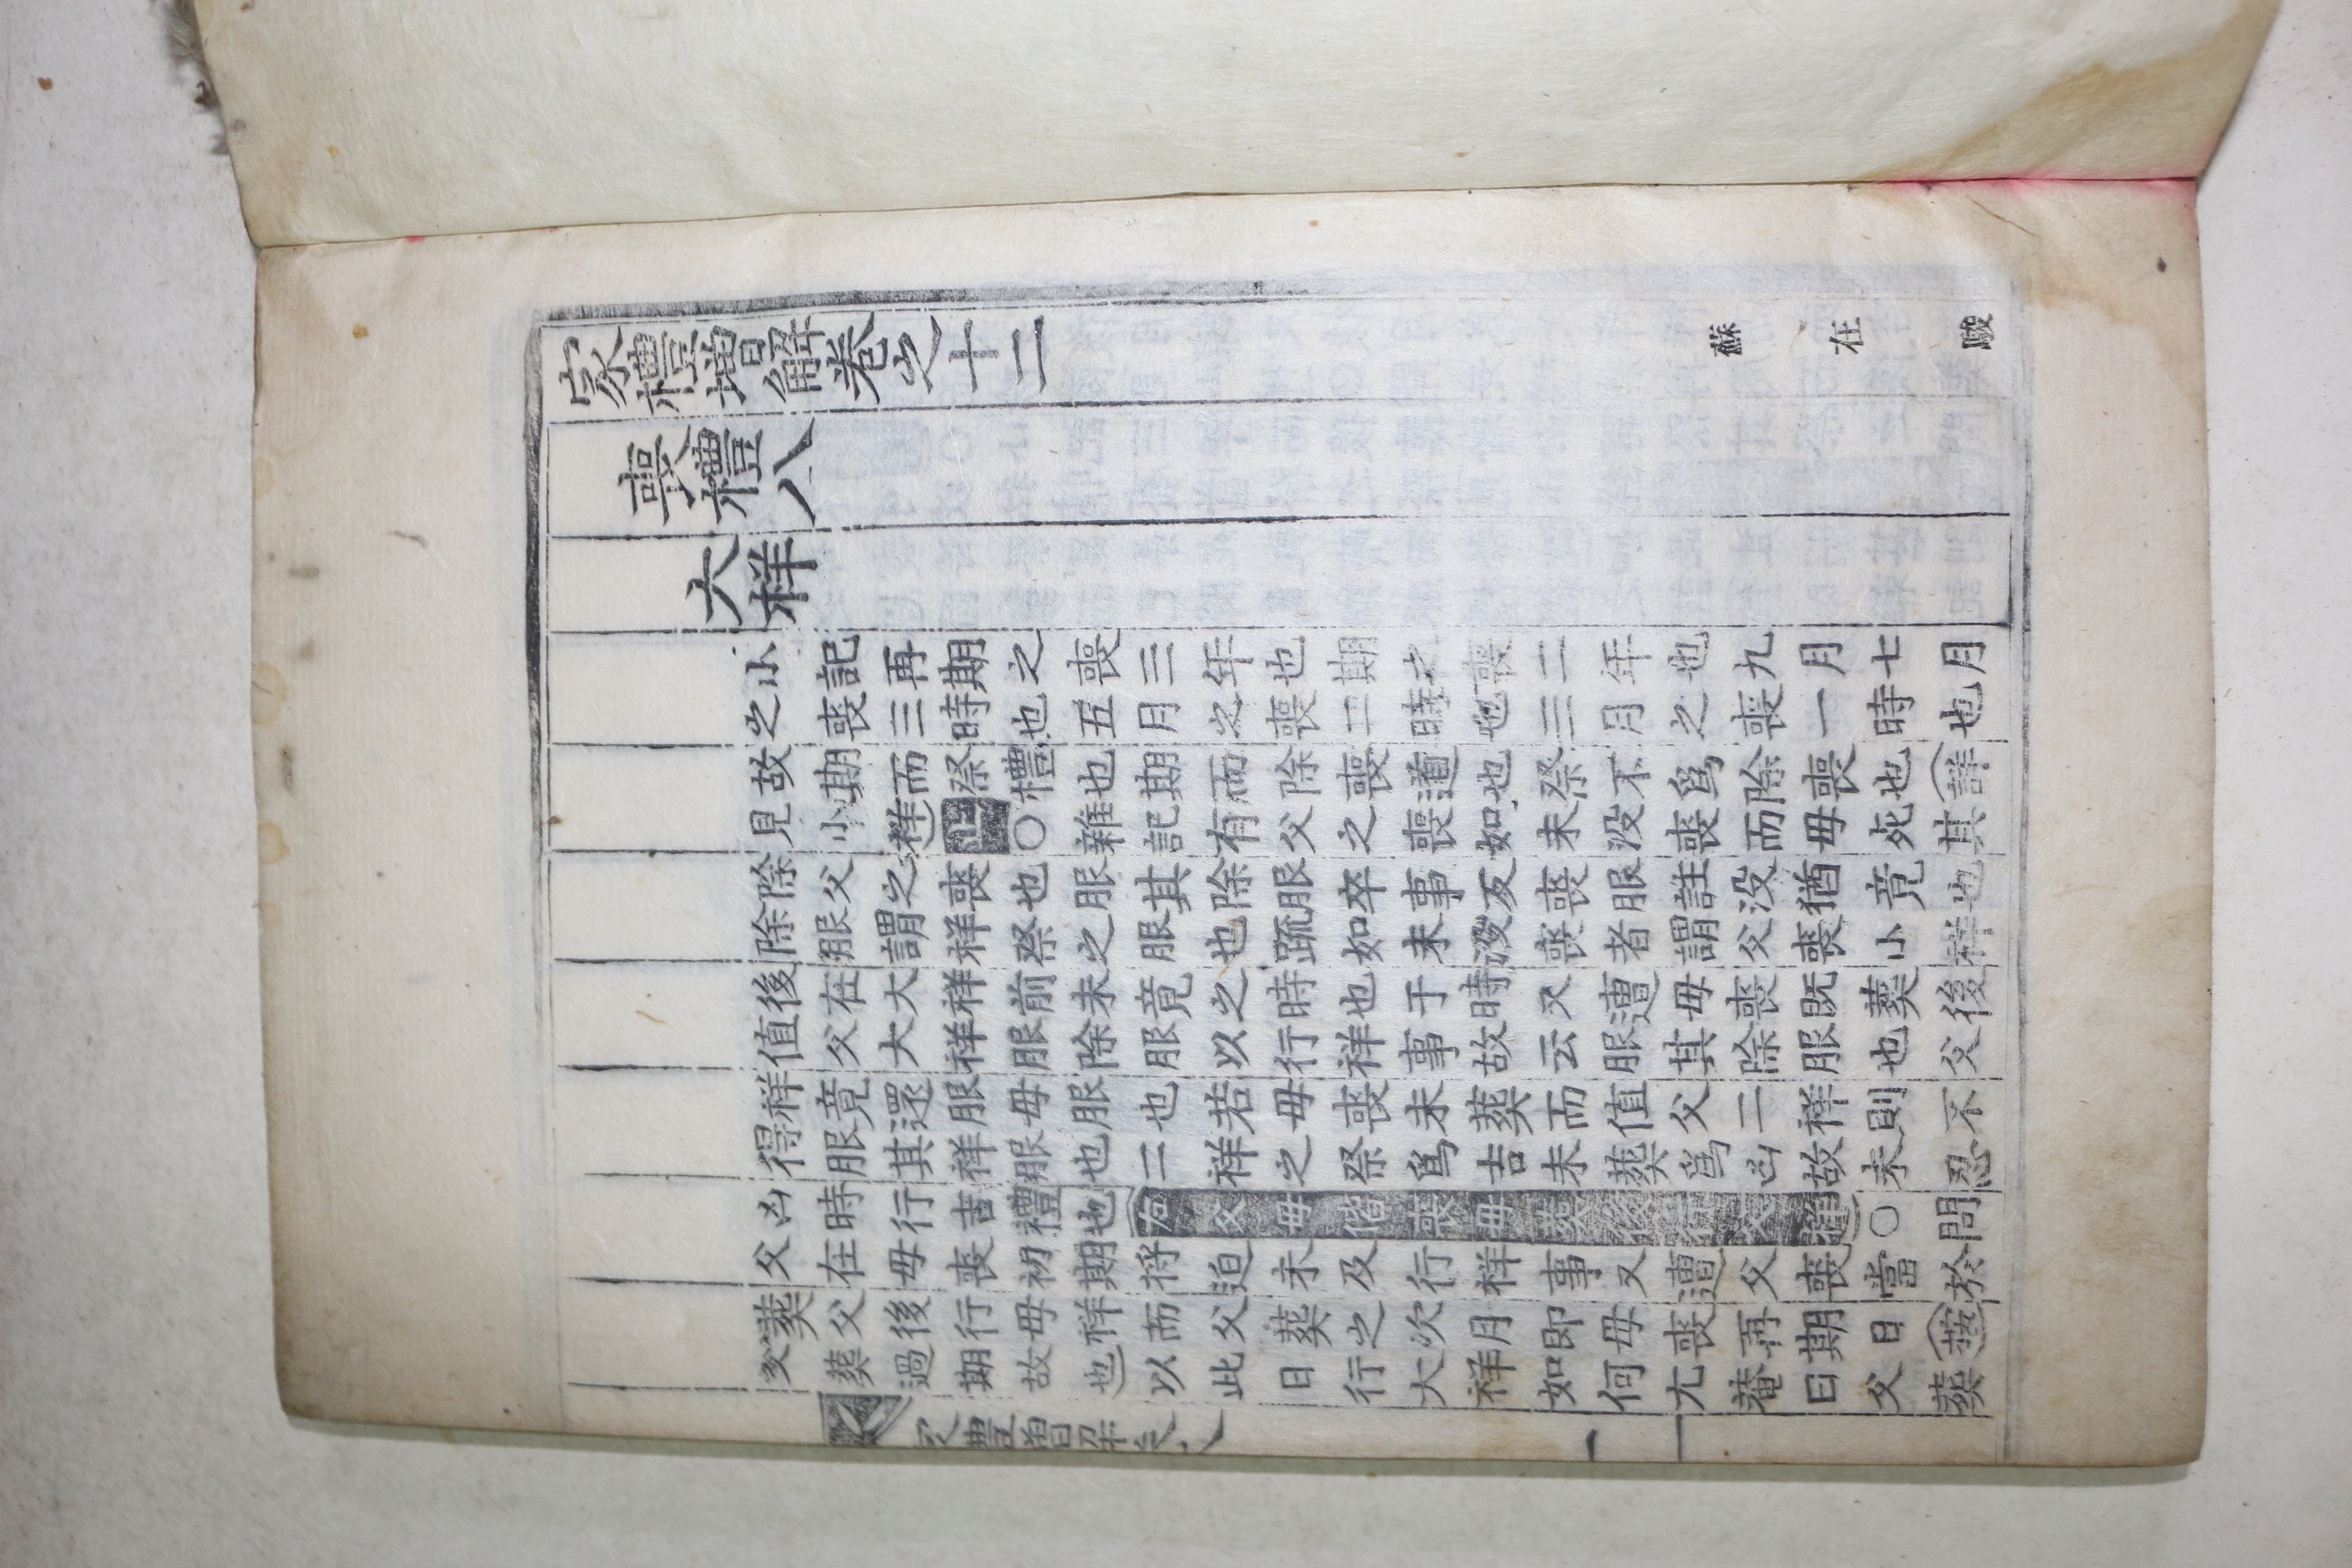 家禮增解卷之十二
蘇在駿
喪禮八
大祥
小記再期之喪三年也期之喪二年也九月七月
之喪三時也五月之喪二時也三月之喪一時也
故期而祭禮也期而除喪道也祭不爲除喪也(詳
見小祥)止○雜記有父之喪如未沒喪而母死其
除父之喪也服其除服卒事反喪服註沒猶竟也
除服謂祥祭之服也疏如未沒喪者謂父喪小祥
後在大祥前未竟之時也于時又遭母喪旣葬後
値父大祥祥服除服以行祥事故云服其除服也父
祥竟還服母服也若母喪未葬而値父二祥則不
得服其祥服也二祥之祭爲吉未葬爲凶故未忍
凶時行吉禮也(右父母偕喪母葬後行父祥)○問
父在母喪初期將迫未及行祥事又遭父喪當於
葬父後行母祥而父葬之次月卽母喪再期日(按
父葬過期故也以此日行大祥如何尤菴曰父葬
家禮增解卷八
一